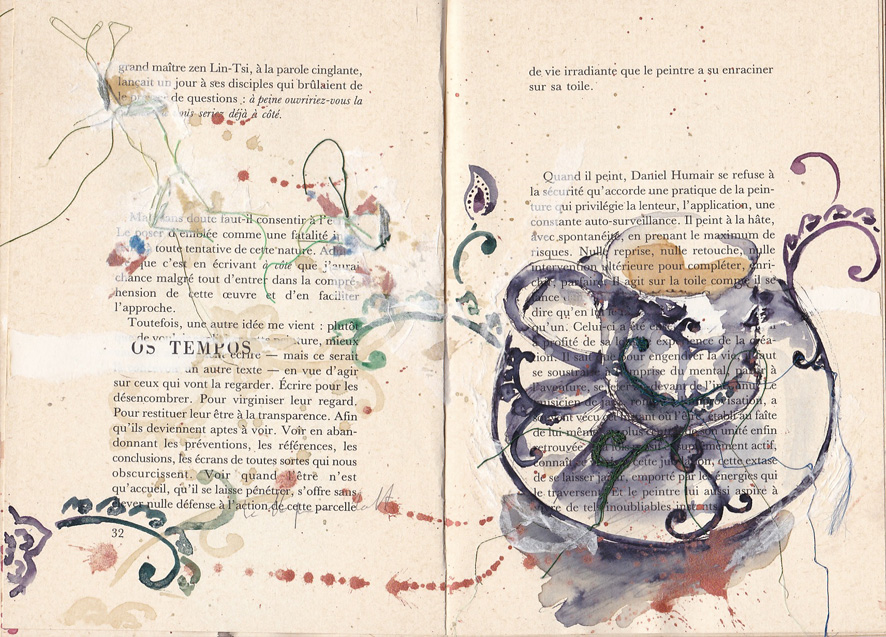 grand maître zen Lin-Tsi, à la parole cinglante,
lançait un jour à ses disciples qui brûlaient de
de questions : à peine ouvririez-vous la
seriez déjà à côté.
Mais sans doute faut-il consentir à
Le poser d'emblée comme une fatalité
toute tentative de cette nature.
que c'est en écrivant à côté que j'aurai
chance malgré tout d'entrer dans la compré-
hension de cette œuvre et d'en faciliter
l'approche.
Toutefois, une autre idée me vient : plutôt
mieux
OS TEMPOS
écrire — mais ce serait
un autre texte — en vue d'agir
sur ceux qui vont la regarder. Écrire pour les
désencombrer. Pour virginiser leur regard.
Pour restituer leur être à la transparence. Afin
qu'ils deviennent aptes à voir. Voir en aban-
donnant les préventions, les références, les
conclusions, les écrans de toutes sortes qui nous
obscurcissent. Voir quand l'être n'est
qu'accueil, qu'il se laisse pénétrer, s'offre sans
lever nulle défense à l'action de cette parcelle
32
de vie irradiante que le peintre a su enraciner
sur sa toile.
Quand il peint, Daniel Humair se refuse à
la sécurité qu'accorde une pratique de la pein-
ture qui privilégie la lenteur, l'application, une
constante auto-surveillance. Il peint à la hâte,
avec spontanéité, en prenant le maximum de
risques. Nulle reprise, nulle retouche, nulle
intervention ultérieure pour compléter, enri-
chir, parfaire. Il agit sur la toile comme il se
lance
dire qu'en lui
qu'un. Celui-ci a été
à profit de sa expérience de la créa-
tion. Il sait que pour engendrer la vie, il faut
se soustraire à l'emprise du mental, partir à
l'aventure, se devant de l'inconnu. Le
musicien de jazz, improvisation, a
souvent vécu cet instant où l'être, établi au faîte
de lui-même, plus son unité enfin
retrouvée, suprêmement actif,
connaît cette jubilation, cette extase
de se laisser jouer, emporté par les énergies qui
le traversent. Et le peintre lui aussi aspire à
vivre de tels inoubliables instants.